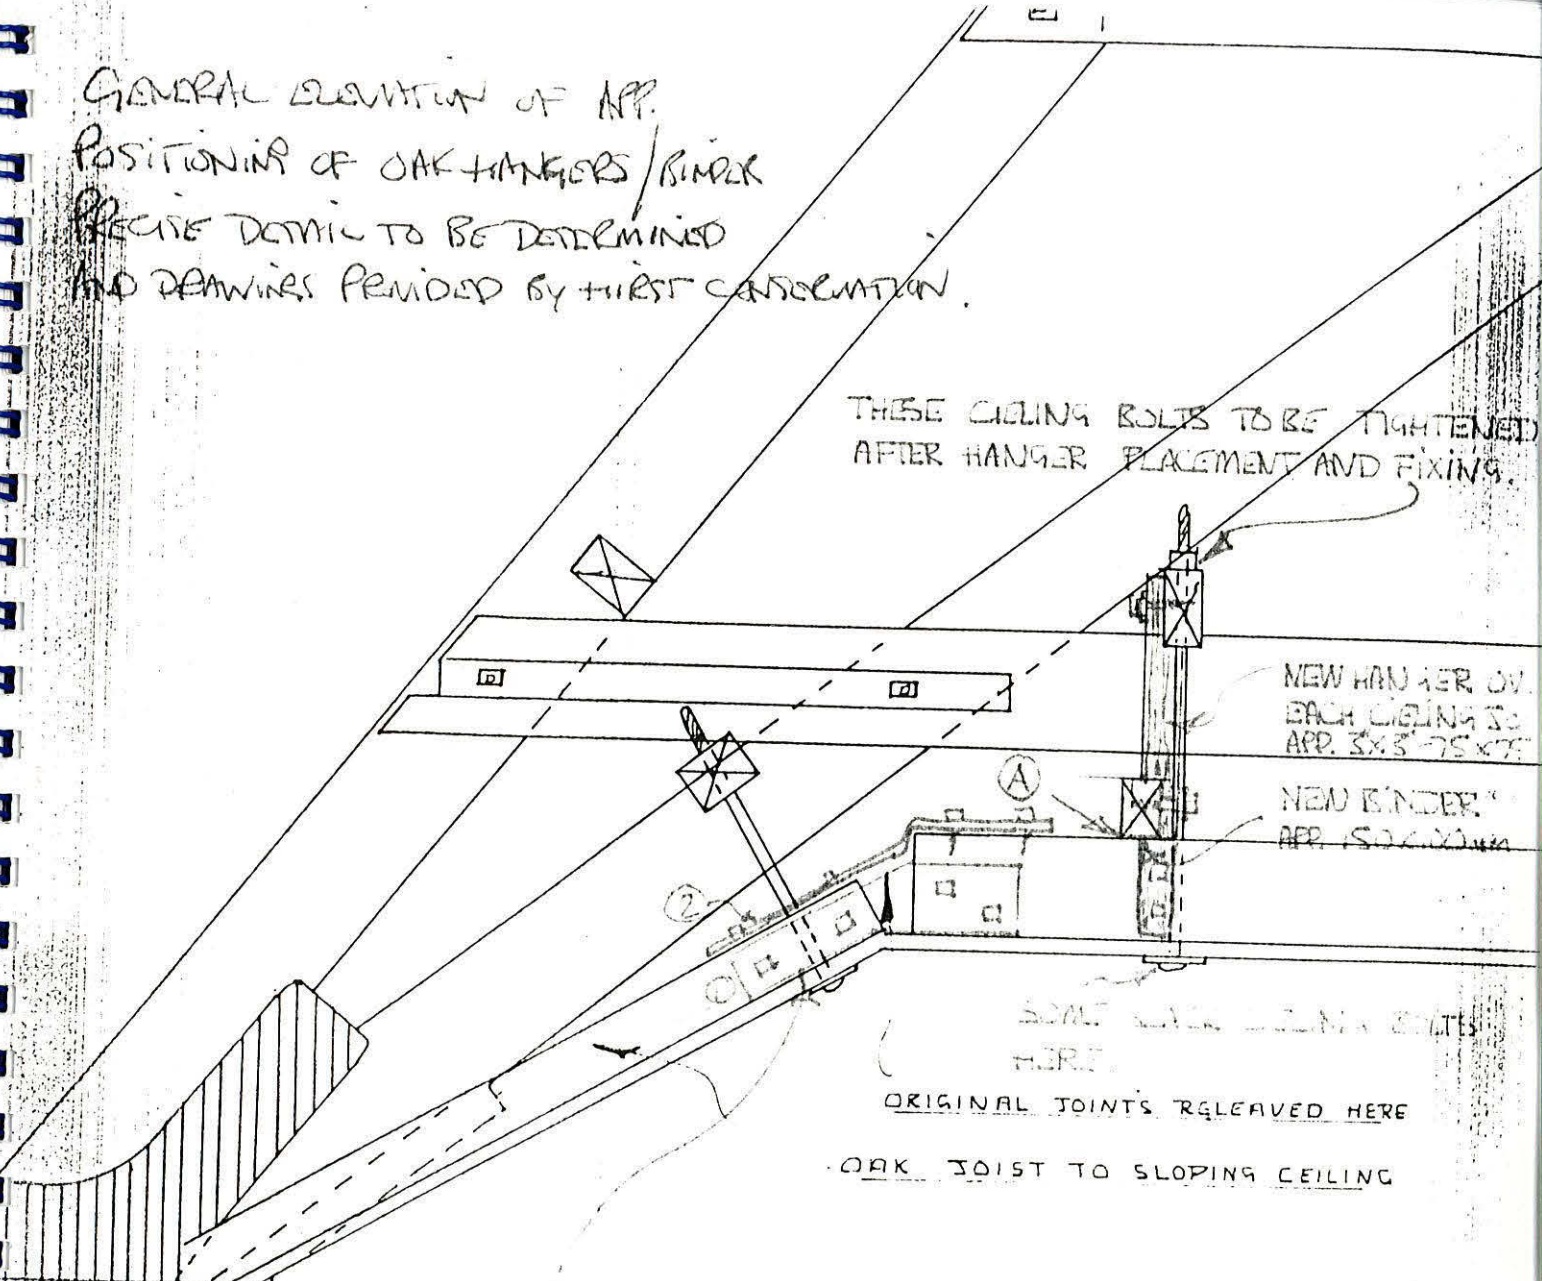 GENERAL ELEVATION OF APP.
POSITIONING OF OAK HANGERS/BINDER
PRECISE DETAIL TO BE DETERMINED
AND DRAWINGS PROVIDED BY HIRST CONSERVATION.
THESE CIELING BOLTS TO BE TIGHTENED
AFTER HANGER PLACEMENT AND FIXING.
NEW HANGER OV.
EACH CIELING JO
APP. 3X3 - 75 x 75
A
NEW BINDER
APP. 150 x 100 mm
2
1
BOLTS
HERE.
ORIGINAL JOINTS RELEAVED HERE
OAK JOIST TO SLOPING CEILING